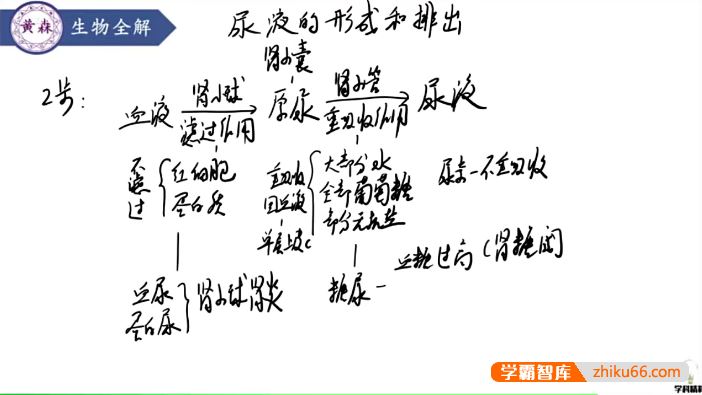 黄森 生物全解
尿液的形成和排出
肾小囊
2步:
血液 肾小球 滤过作用 原尿 肾小管 重吸收作用 尿液
不滤过 红细胞 蛋白质
重吸收回血液 单层上皮c
大部分水
全部葡萄糖
部分无机盐
尿素一不重吸收
血尿 蛋白尿 肾小球肾炎
糖尿 - 血糖过高(肾糖阈
学霸智库 zhiku66.com
学科精